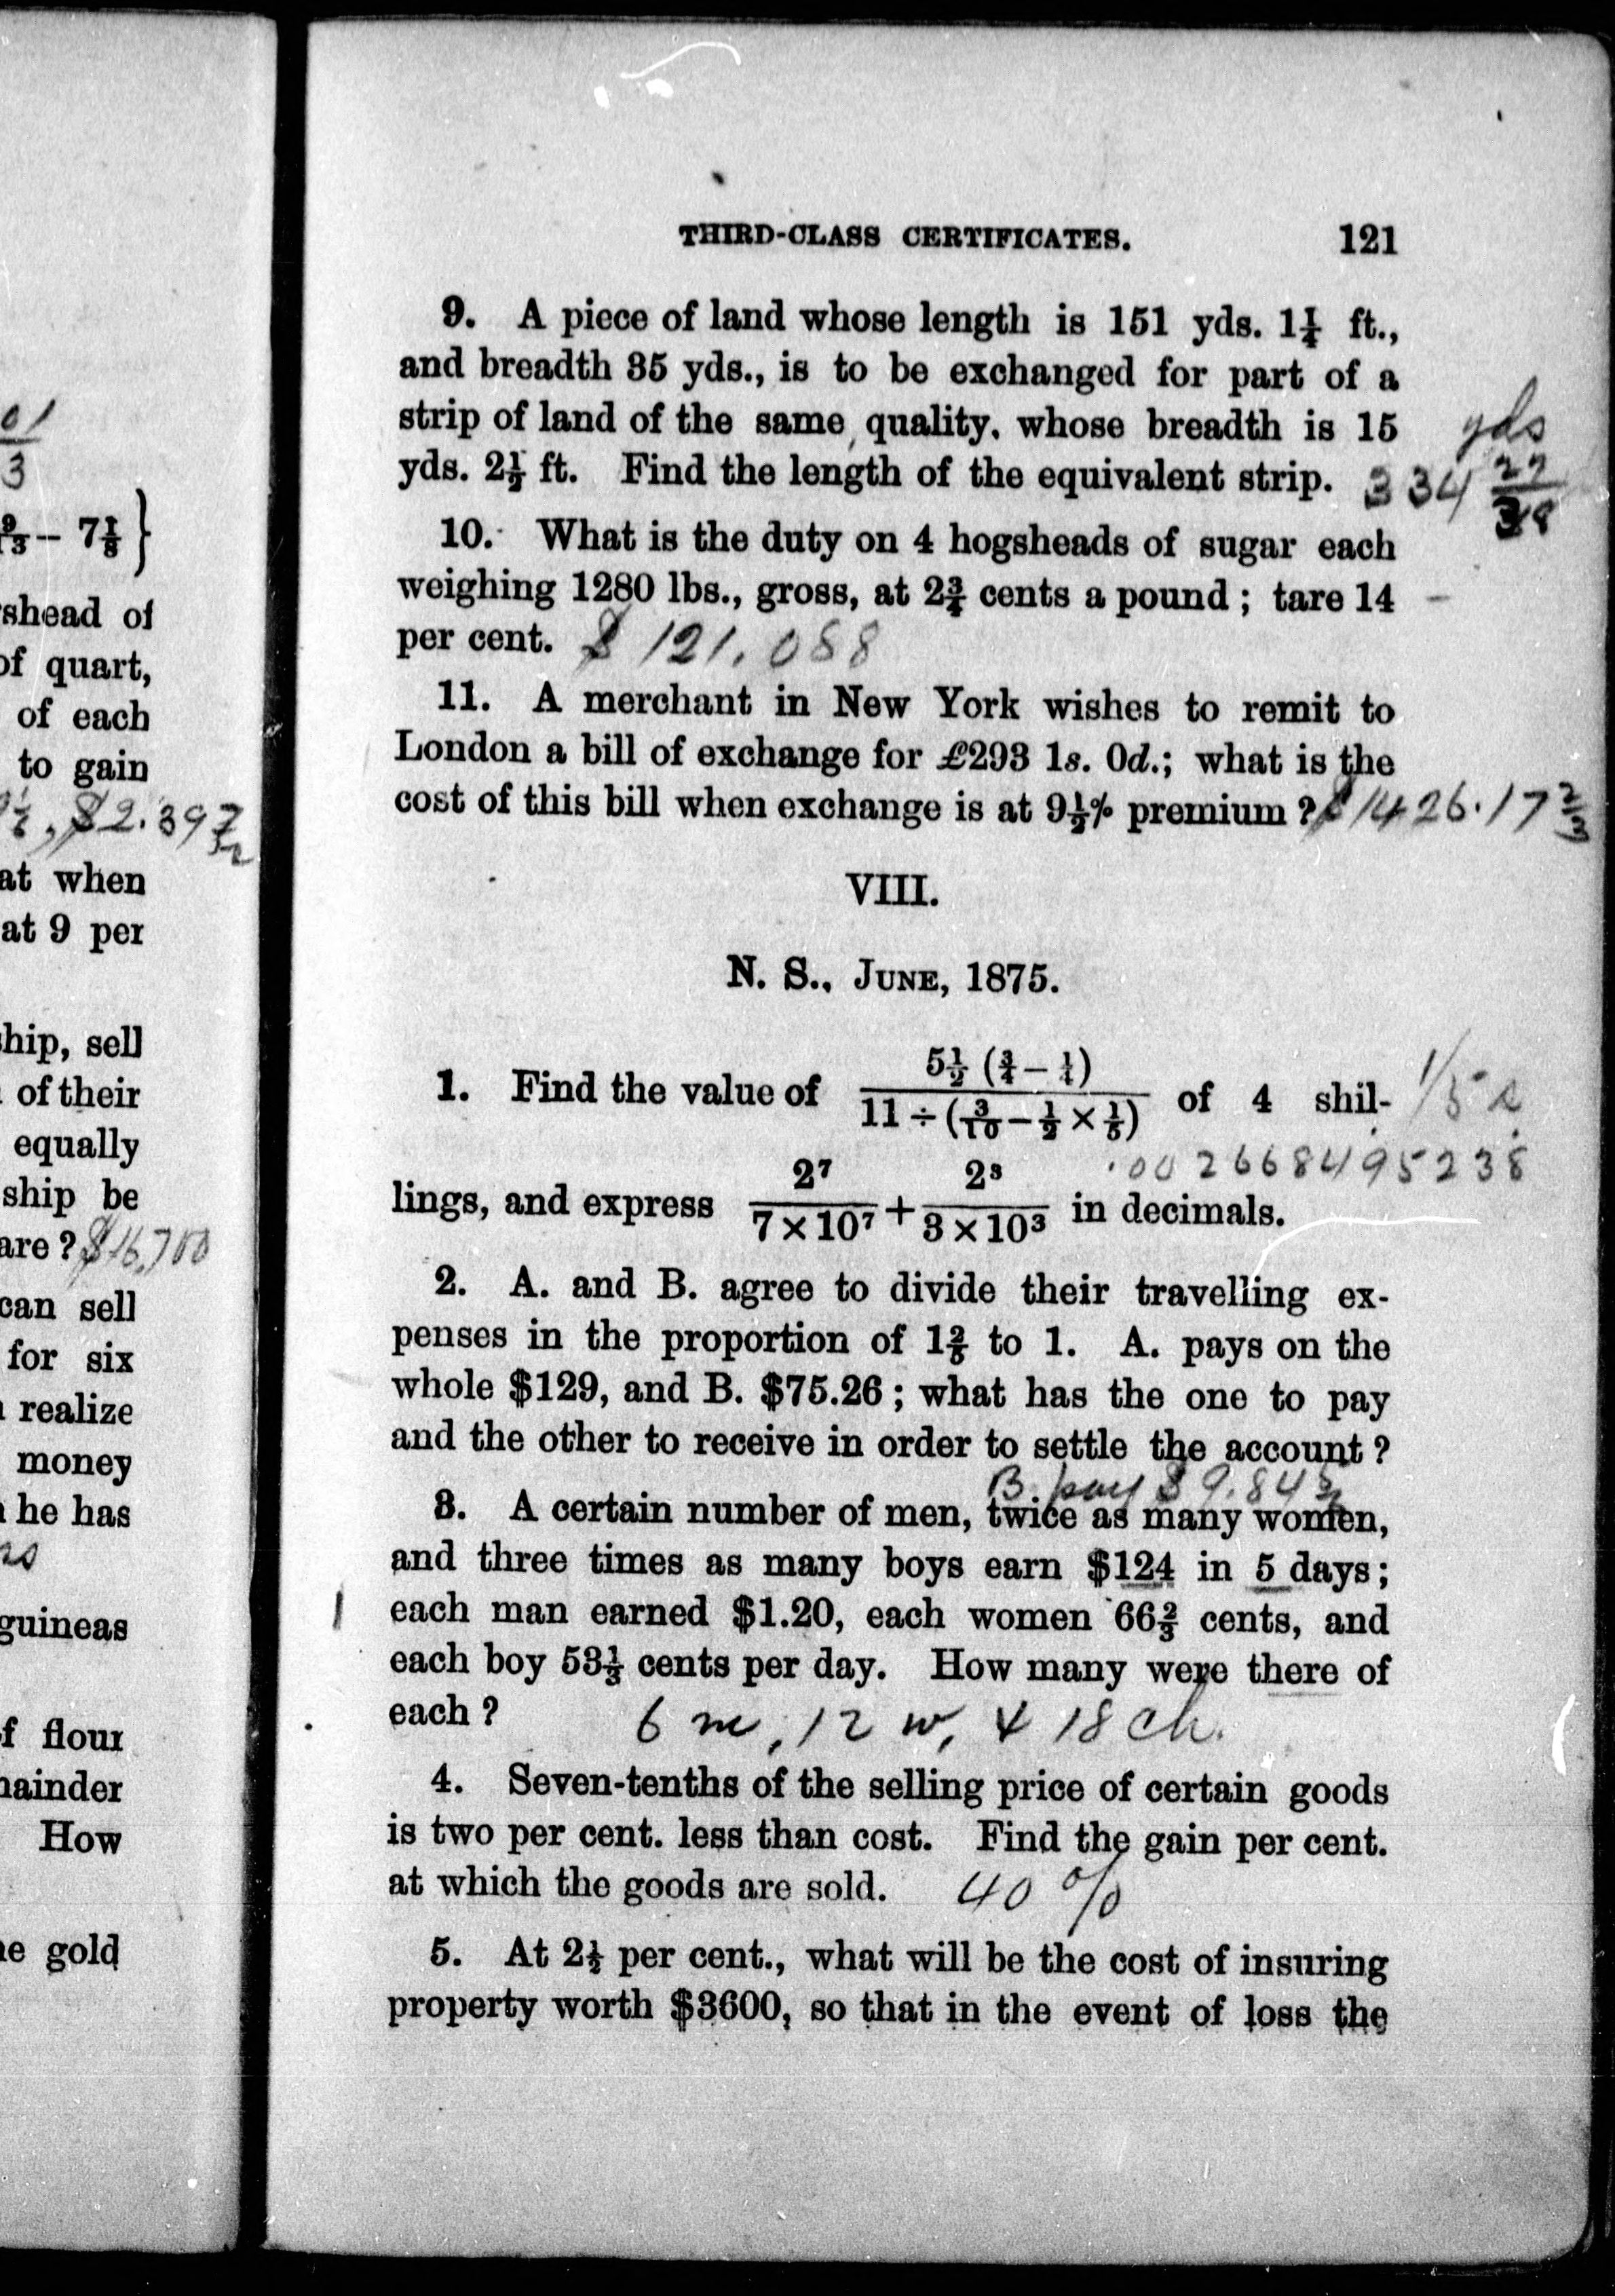 01
3
9/13 – 7 1/8 }
shead of
of quart,
of each
to gain
$2.397
at when
at 9 per
hip, sell
of their
equally
ship be
are ? $16,700
can sell
for six
realize
money
he has
guineas
f flour
nainder
How
e gold
THIRD-CLASS CERTIFICATES. 121
9. A piece of land whose length is 151 yds. 1¼ ft.,
and breadth 35 yds., is to be exchanged for part of a
strip of land of the same quality, whose breadth is 15
yds. 2½ ft. Find the length of the equivalent strip. 334 27/38 yds
10. What is the duty on 4 hogsheads of sugar each
weighing 1280 lbs., gross, at 2¾ cents a pound ; tare 14
per cent. $ 121.088
11. A merchant in New York wishes to remit to
London a bill of exchange for £293 1s. 0d.; what is the
cost of this bill when exchange is at 9½% premium ? $1426.17 2/3
VIII.
N. S., JUNE, 1875.
1. Find the value of 5½ (¾ – ¼) / 11 ÷ (3/10 – ½ × 1/5) of 4 shil- 1/5 s
.002668495238
lings, and express 2⁷ / 7 × 10⁷ + 2³ / 3 × 10³ in decimals.
2. A. and B. agree to divide their travelling ex-
penses in the proportion of 1⅖ to 1. A. pays on the
whole $129, and B. $75.26 ; what has the one to pay
and the other to receive in order to settle the account ?
B. pay $9.84
3. A certain number of men, twice as many women,
and three times as many boys earn $124 in 5 days ;
each man earned $1.20, each women 66⅔ cents, and
each boy 53⅓ cents per day. How many were there of
each ? 6 m, 12 w, & 18 ch.
4. Seven-tenths of the selling price of certain goods
is two per cent. less than cost. Find the gain per cent.
at which the goods are sold. 40 %
5. At 2½ per cent., what will be the cost of insuring
property worth $3600, so that in the event of loss the